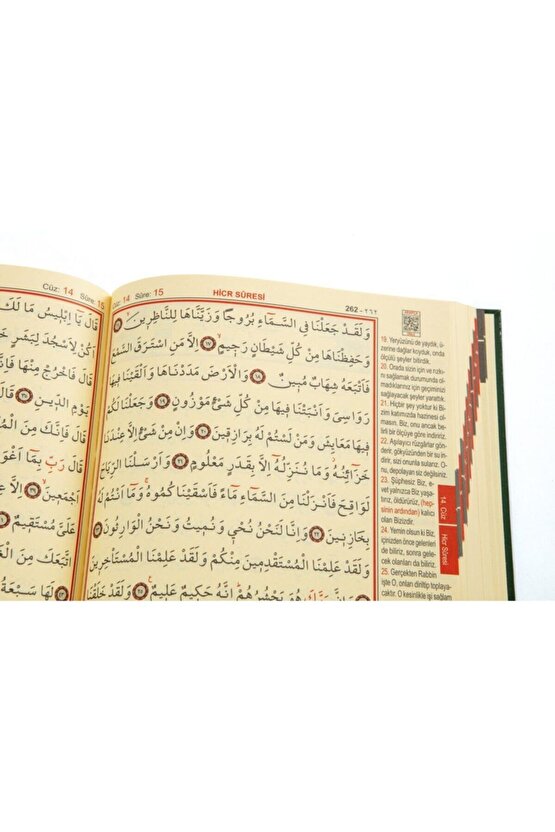 Cüz: 14 Sûre: 15
قَالَ يَٓا اِبْلٖيسُ مَا لَكَ
اَكُنْ لِاَسْجُدَ لِبَشَرٍ
قَالَ فَاخْرُجْ مِنْهَا فَاِنَّكَ
يَوْمِ الدّٖينِ
قَالَ فَاِنَّكَ مِنَ الْمُ
قَالَ رَبِّ بِمَٓا اَغْوَ
اَجْمَعٖينَ اِلَّا عِ
عَلَيَّ مُسْتَقٖيمٌ
اتَّبَعَكَ مِنَ الْغَ
لَهَا سَبْعَةُ
Cüz: 14 Sûre: 15 HİCR SÛRESİ 262 - ٢٦٢
وَلَقَدْ جَعَلْنَا فِي السَّمَٓاءِ بُرُوجًا وَزَيَّنَّاهَا لِلنَّاظِرٖينَ ١٦
وَحَفِظْنَاهَا مِنْ كُلِّ شَيْطَانٍ رَجٖيمٍ ١٧ اِلَّا مَنِ اسْتَرَقَ السَّمْعَ
فَاَتْبَعَهُ شِهَابٌ مُبٖينٌ ١٨ وَالْاَرْضَ مَدَدْنَاهَا وَاَلْقَيْنَا فٖيهَا
رَوَاسِيَ وَاَنْبَتْنَا فٖيهَا مِنْ كُلِّ شَيْءٍ مَوْزُونٍ ١٩ وَجَعَلْنَا لَكُمْ
فٖيهَا مَعَايِشَ وَمَنْ لَسْتُمْ لَهُ بِرَازِقٖينَ ٢٠ وَاِنْ مِنْ شَيْءٍ اِلَّا عِنْدَنَا
خَزَٓائِنُهُ وَمَا نُنَزِّلُهُٓ اِلَّا بِقَدَرٍ مَعْلُومٍ ٢١ وَاَرْسَلْنَا الرِّيَاحَ
لَوَاقِحَ فَاَنْزَلْنَا مِنَ السَّمَٓاءِ مَٓاءً فَاَسْقَيْنَاكُمُوهُ وَمَٓا اَنْتُمْ لَهُ
بِخَازِنٖينَ ٢٢ وَاِنَّا لَنَحْنُ نُحْيٖ وَنُمٖيتُ وَنَحْنُ الْوَارِثُونَ ٢٣
وَلَقَدْ عَلِمْنَا الْمُسْتَقْدِمٖينَ مِنْكُمْ وَلَقَدْ عَلِمْنَا الْمُسْتَأْخِرٖينَ
٢٤ وَاِنَّ رَبَّكَ هُوَ يَحْشُرُهُمْ اِنَّهُ حَكٖيمٌ عَلٖيمٌ ٢٥ وَلَقَدْ خَلَقْنَا
19. Yeryüzünü de yaydık, ü-
zerine dağlar koyduk, onda
ölçülü şeyler bitirdik.
20. Orada sizin için ve rızkı-
nı sağlamak durumunda ol-
madıklarınız için geçiminizi
sağlayacak şeyler yarattık.
21. Hiçbir şey yoktur ki Bi-
zim katımızda hazinesi ol-
masın. Biz, onu ancak be-
lirli bir ölçüye göre indiririz.
22. Aşılayıcı rüzgârlar gön-
derir, gökyüzünden bir su in-
dirir, sizi onunla sularız. O-
nu, depolayan siz değilsiniz.
23. Şüphesiz Biz, e-
vet yalnızca Biz yaşa-
tırız, öldürürüz, (hep-
sinin ardından) kalıcı
olan Bizizdir.
24. Yemin olsun ki Biz,
içinizden önce gelenleri
de biliriz, sonra gele-
cek olanları da biliriz.
25. Gerçekten Rabbin
işte O, onları diriltip toplaya-
caktır. O kesinlikle işi sağlam
14. Cüz
Hicr Sûresi